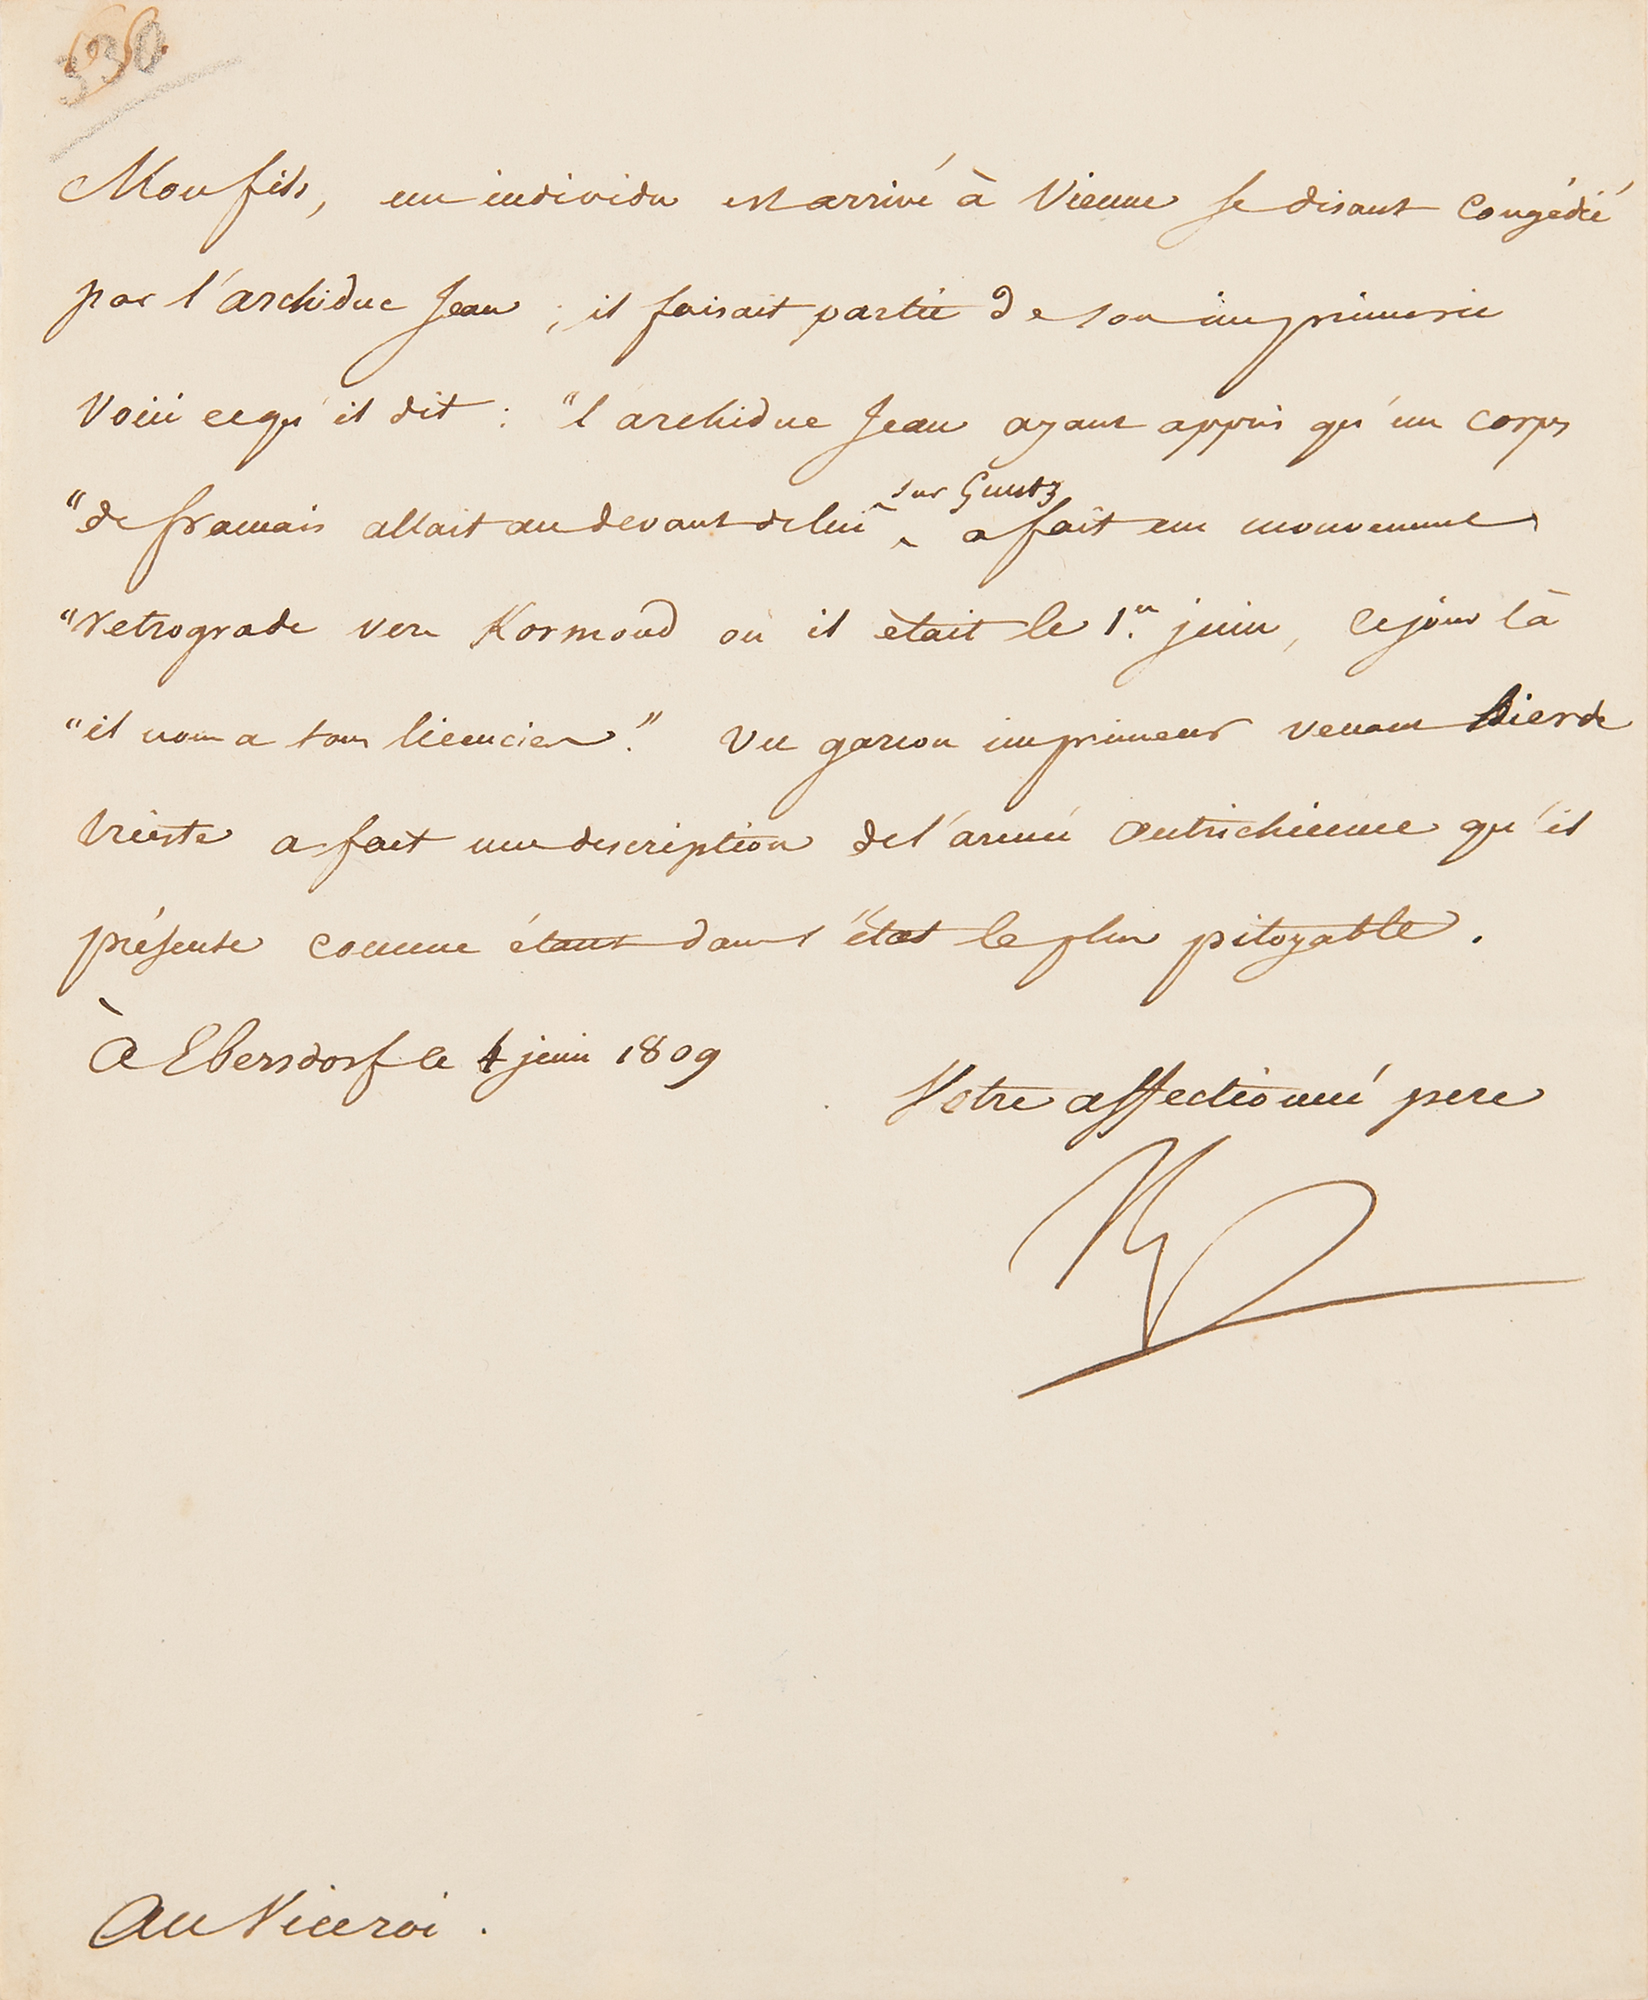 530
Mon fils, un individu est arrivé à Vienne se disant congédié
par l'archiduc Jean ; il faisait partie de son imprimerie
Voici ce qu'il dit : "l'archiduc Jean ayant appris qu'un corps
sur Guntz
"de français allait au devant de lui a fait un mouvement
"retrograde vers Kormond ou il était le 1.er juin, ce jour là
"il nous a tous licencies." Un garcon imprimeur venant hier de
trieste a fait une description de l'armée autrichienne qu'il
présente comme étant dans l'état le plus pitoyable.
À Ebersdorf le 4 juin 1809
Votre affectionné pere
Au Viceroi.